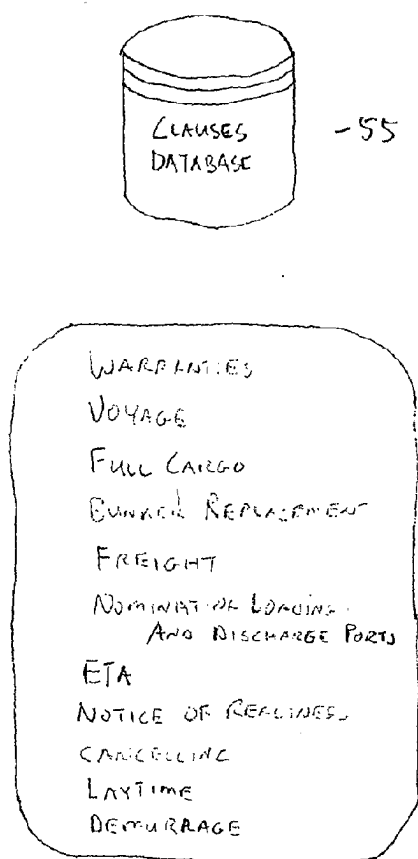 CLAUSES
DATABASE
-55
WARRANTIES
VOYAGE
FULL CARGO
BUNKER REPLACEMENT
FREIGHT
NOMINATION LOADING
AND DISCHARGE PORTS
ETA
NOTICE OF READINESS
CANCELLING
LAYTIME
DEMURRAGE